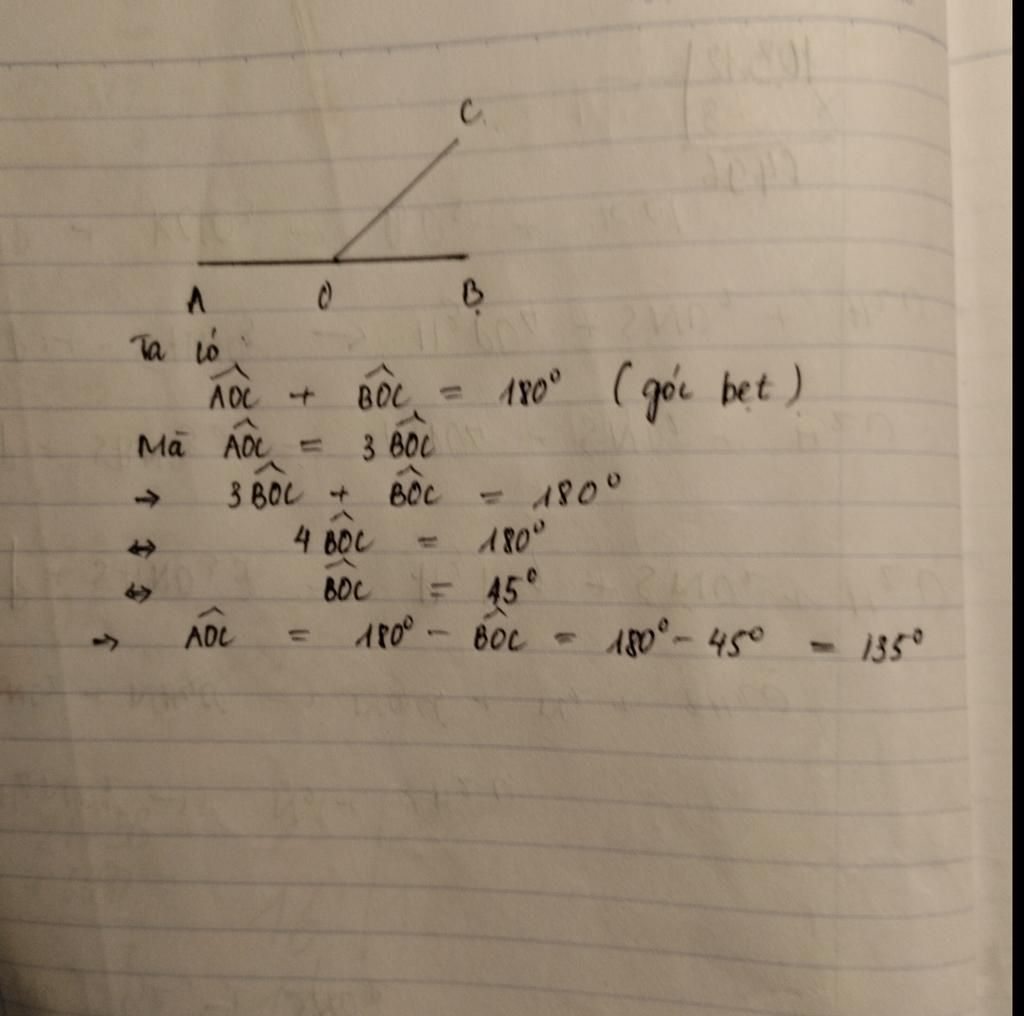 C
A O B
Ta có:
\widehat{AOC} + \widehat{BOC} = 180° (góc bẹt)
Mà \widehat{AOC} = 3 \widehat{BOC}
→ 3 \widehat{BOC} + \widehat{BOC} = 180°
⇔ 4 \widehat{BOC} = 180°
⇔ \widehat{BOC} = 45°
→ \widehat{AOC} = 180° - \widehat{BOC} = 180° - 45° = 135°